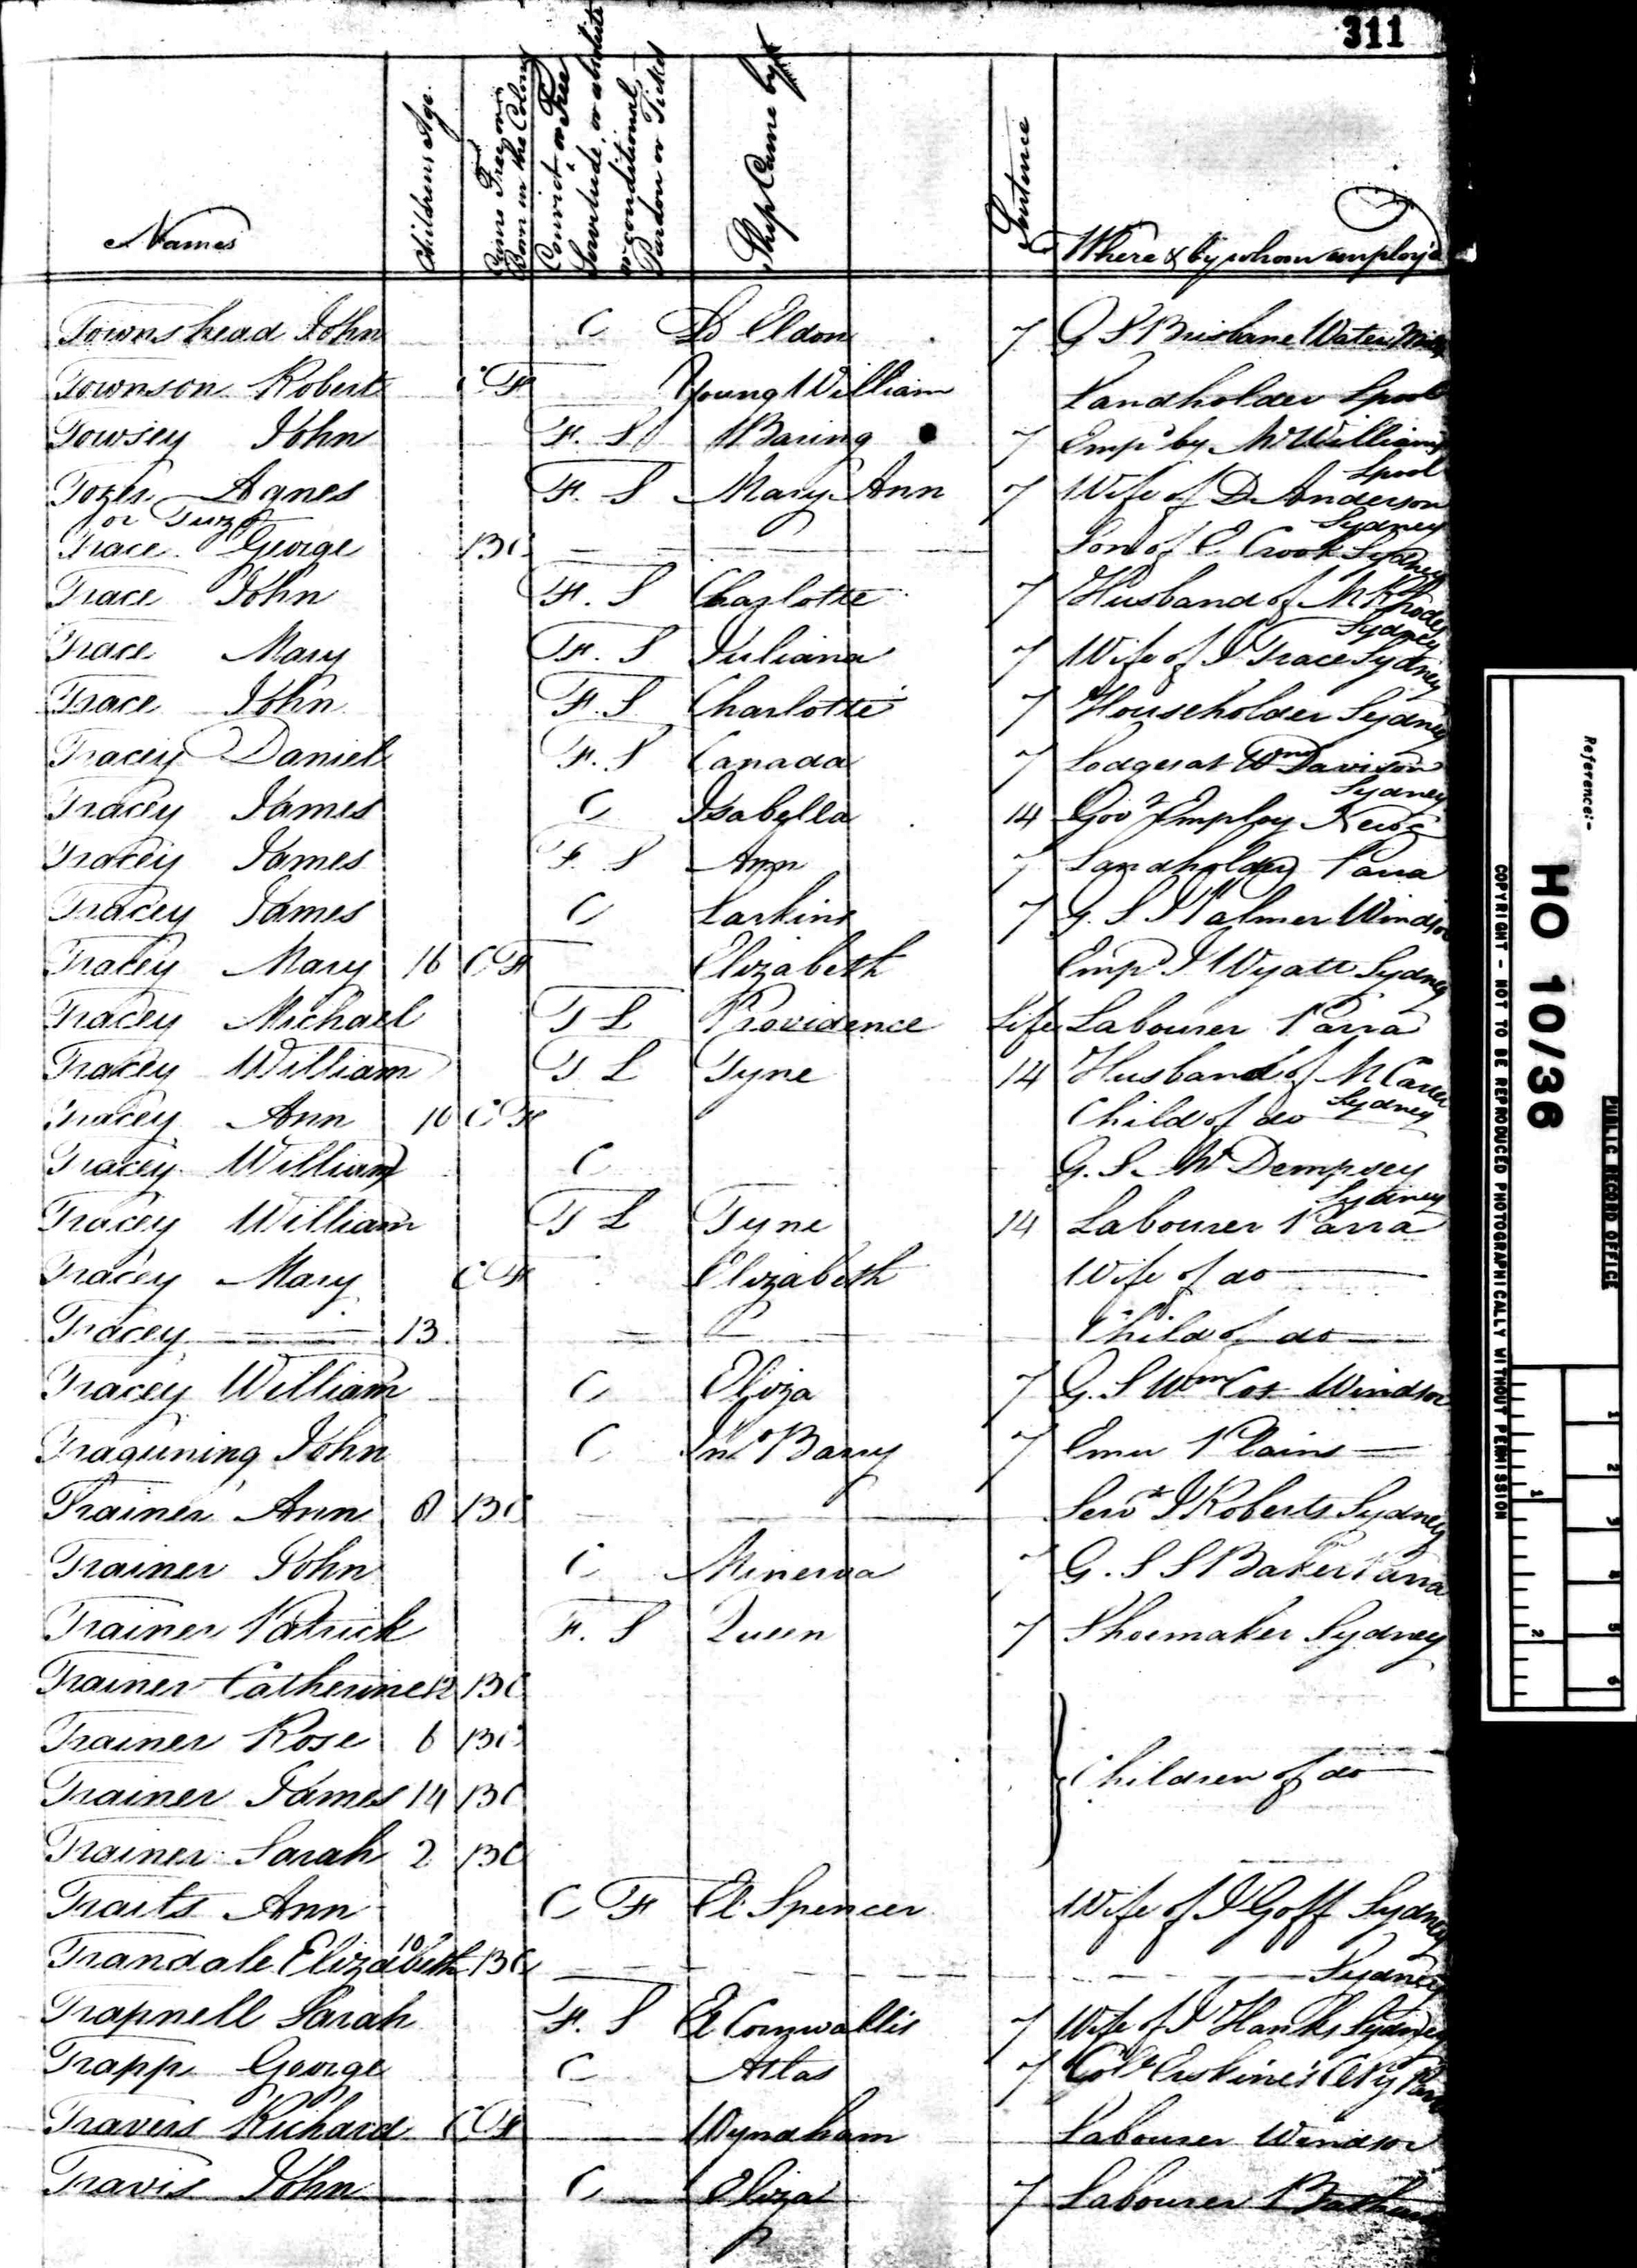 311
Names
Childrens Age.
Came Free or Born in the Colony
Convict or Free Servitude, or absolute or conditional Pardon or Ticket
Ship Came by
Sentence
Where & by whom employ'd
Townshead John C Ld Eldon 7 G S Brisbane Water
Townson Robert CF Young William Landholder Lpool
Towsey John F. S Baring 7 Empd by Mr Williams Lpool
Tozer Agnes F. S Mary Ann 7 Wife of D Anderson Sydney
or
Trace George BC Son of E Crook Sydney
Trace John F. S Charlotte 7 Husband of M Rhodes Sydney
Trace Mary F. S Juliana 7 Wife of J Trace Sydney
Trace John F. S Charlotte 7 Householder Sydney
Tracey Daniel F. S Canada 7 Lodges at Wm Davison Sydney
Tracey James C Isabella 14 Govt Employ Newc
Tracey James F. S Ann 7 Landholder Parra
Tracey James C Larkins 7 G. S J Palmer Windsor
Tracey Mary 16 CF Elizabeth Empd J Wyatt Sydney
Tracey Michael T L Providence Life Labourer Parra
Tracey William T L Tyne 14 Husband of M Carr Sydney
Tracey Ann 10 CF Child of do
Tracey William C G. S. Mr Dempsey Sydney
Tracey William T L Tyne 14 Labourer Parra
Tracey Mary CF Elizabeth Wife of do
Tracey 13 Child of do
Tracey William C Eliza 7 G. S Wm Cox Windsor
Traguning John C Jno Barry 7 Emu Plains
Trainer Ann 8 BC Servt J Roberts Sydney
Trainer John C Minerva 7 G. S S Baker Parra
Trainer Patrick F. S Queen 7 Shoemaker Sydney
Trainer Catherine 12 BC
Trainer Rose 6 BC
Children of do
Trainer James 14 BC
Trainer Sarah 2 BC
Traits Ann C F El Spencer Wife of J Goff Sydney
Trandale Elizabeth 10 BC Sydney
Trapnell Sarah F. S El Cornwallis 7 Wife of J Hanks Sydney
Trapp George C Atlas 7 Colo Erskine's
Travers Richard CF Wyndham Labourer Windsor
Travis John C Eliza 7 Labourer
Reference:-
HO 10/36
PUBLIC RECORD OFFICE
COPYRIGHT - NOT TO BE REPRODUCED PHOTOGRAPHICALLY WITHOUT PERMISSION
1 2 3 4 5 6
1 2